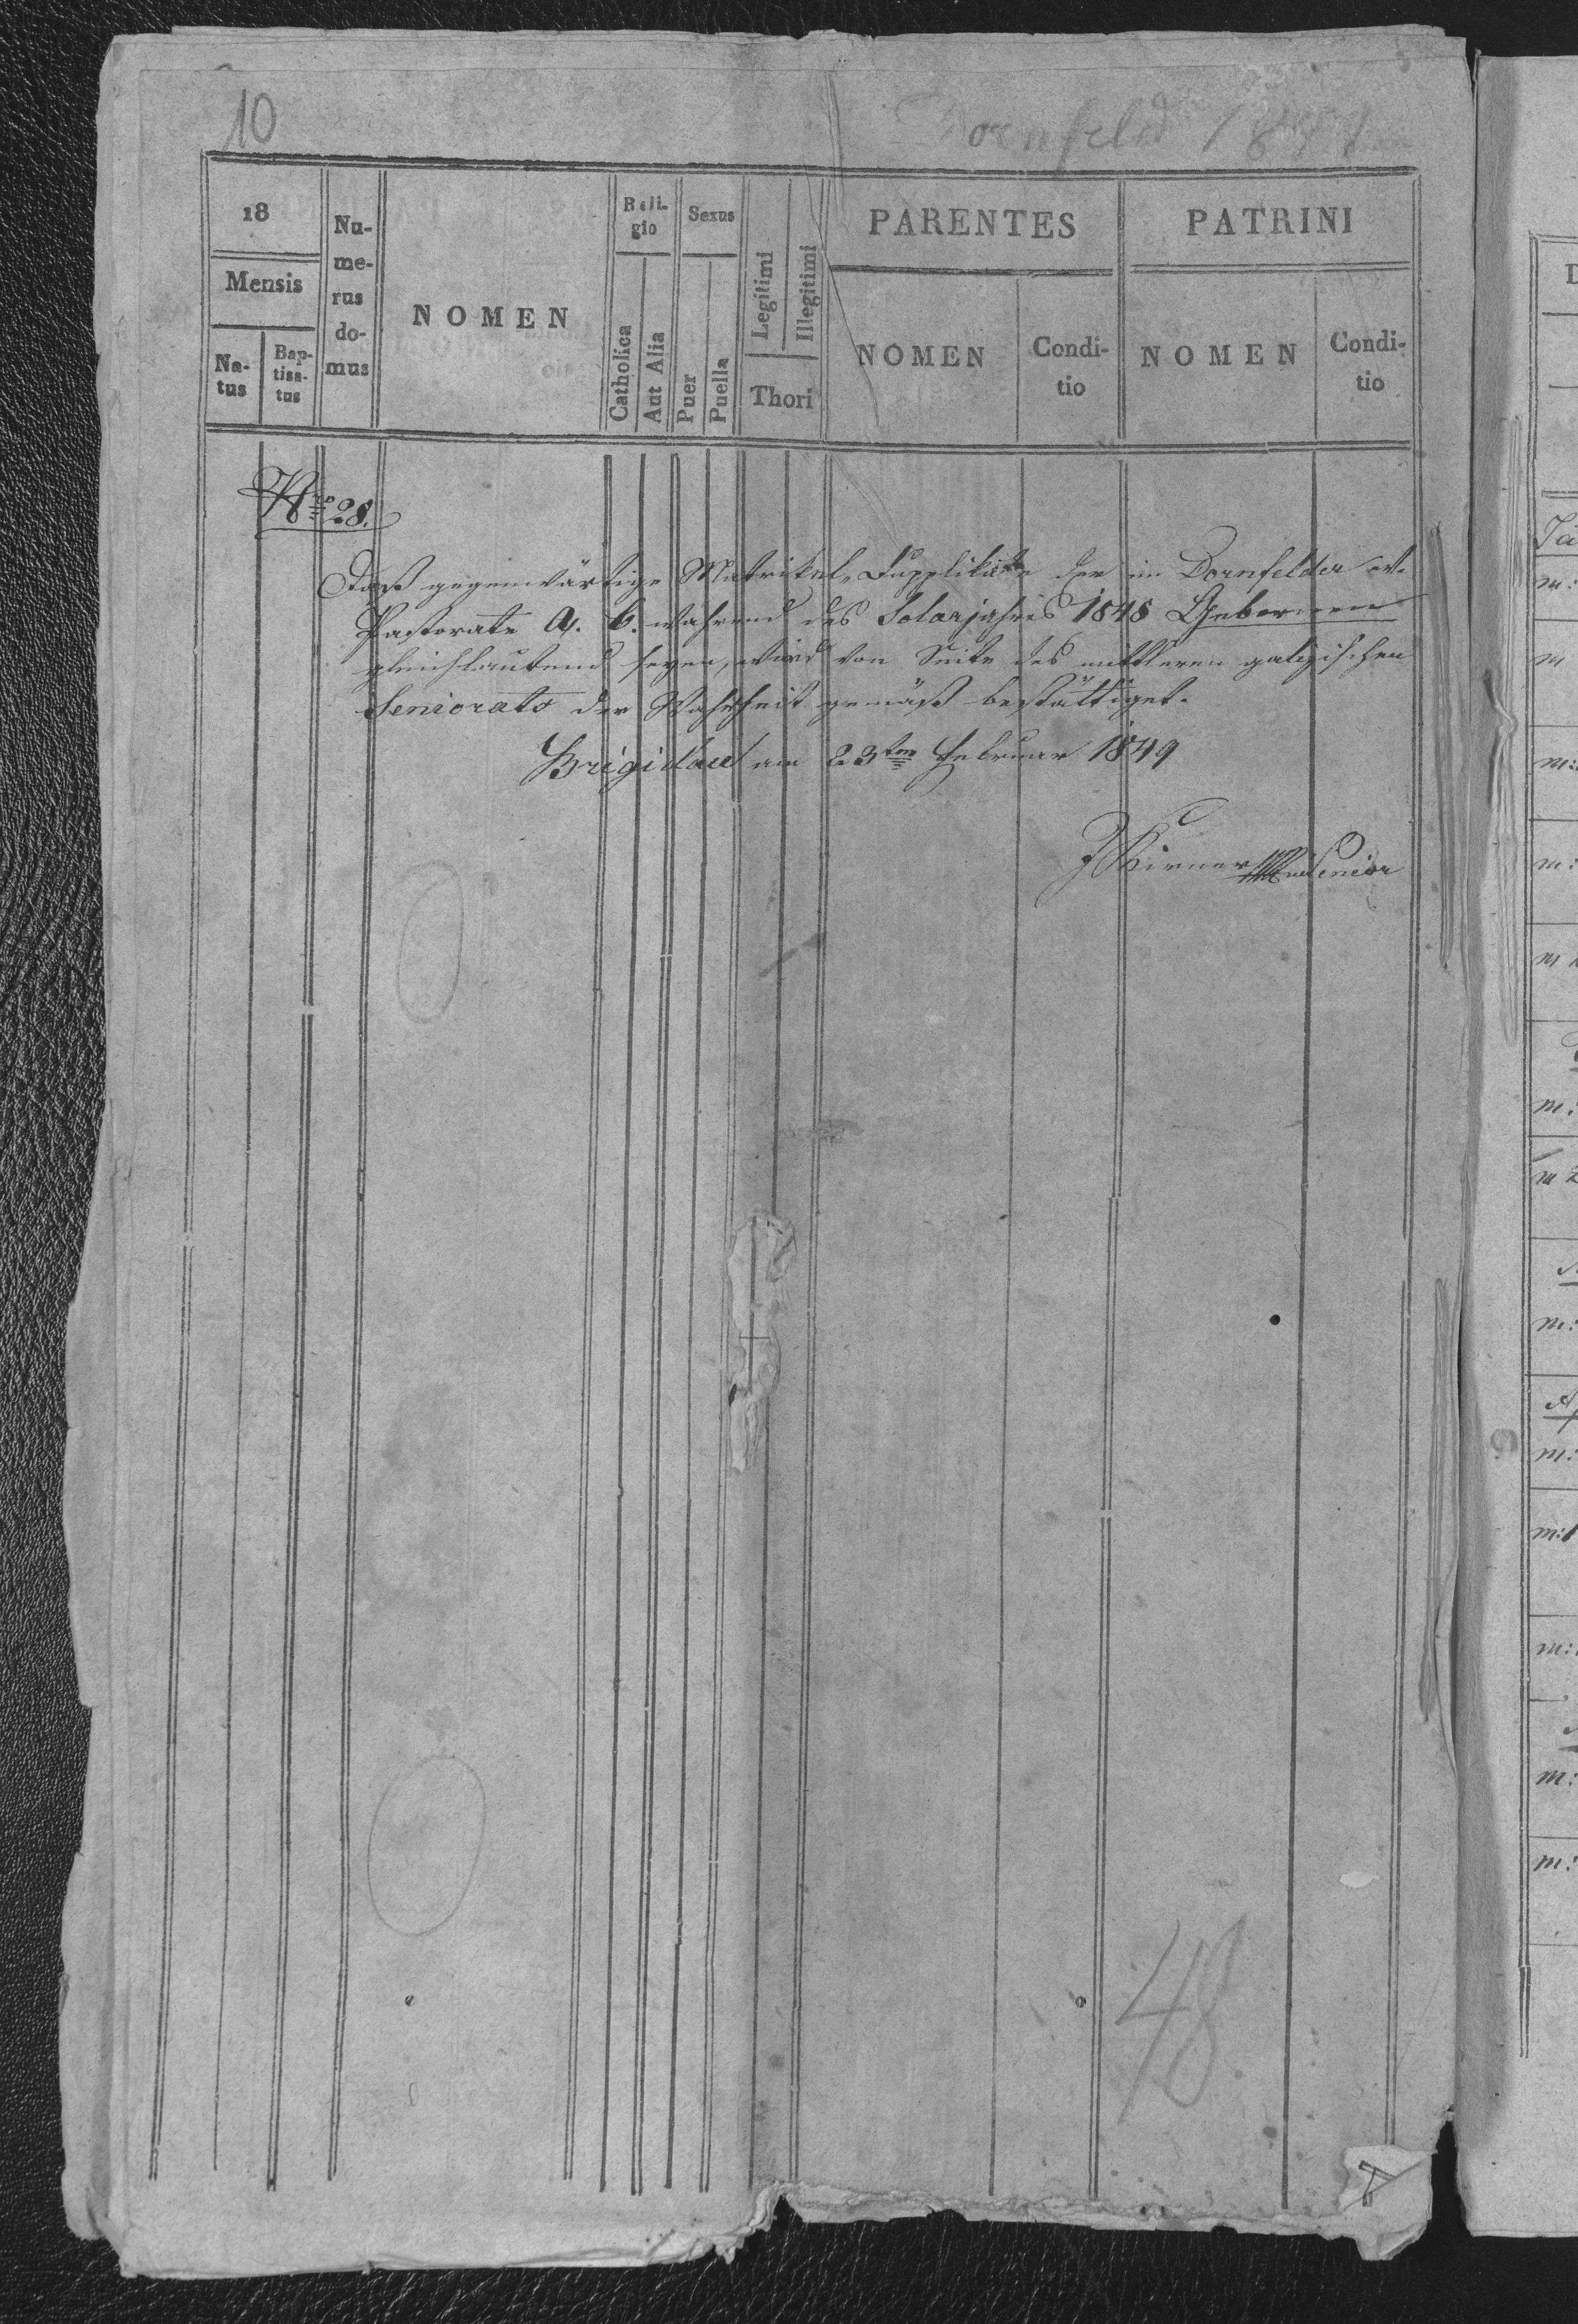 10
Dornfeld
18
Mensis
Na-
tus
Bap-
tisa-
tus
Nu-
me-
rus
do-
mus
NOMEN
Reli-
gio
Catholica
Aut Alia
Sexus
Puer
Puella
Legitimi
Illegitimi
Thori
PARENTES
NOMEN
Condi-
tio
PATRINI
NOMEN
Condi-
tio
Nro 28.
Daß gegenwärtige Matrikel-Dupplikate der im Dornfelder ev.
Pastorate A. C. während des Solarjahres 1848 Gebornen
gleichlautend seyen, wird von Seite des mittleren galizischen
Seniorats der Wahrheit gemäß bestättiget.
Brigidau am 23ten Februar 1849
Senior
48